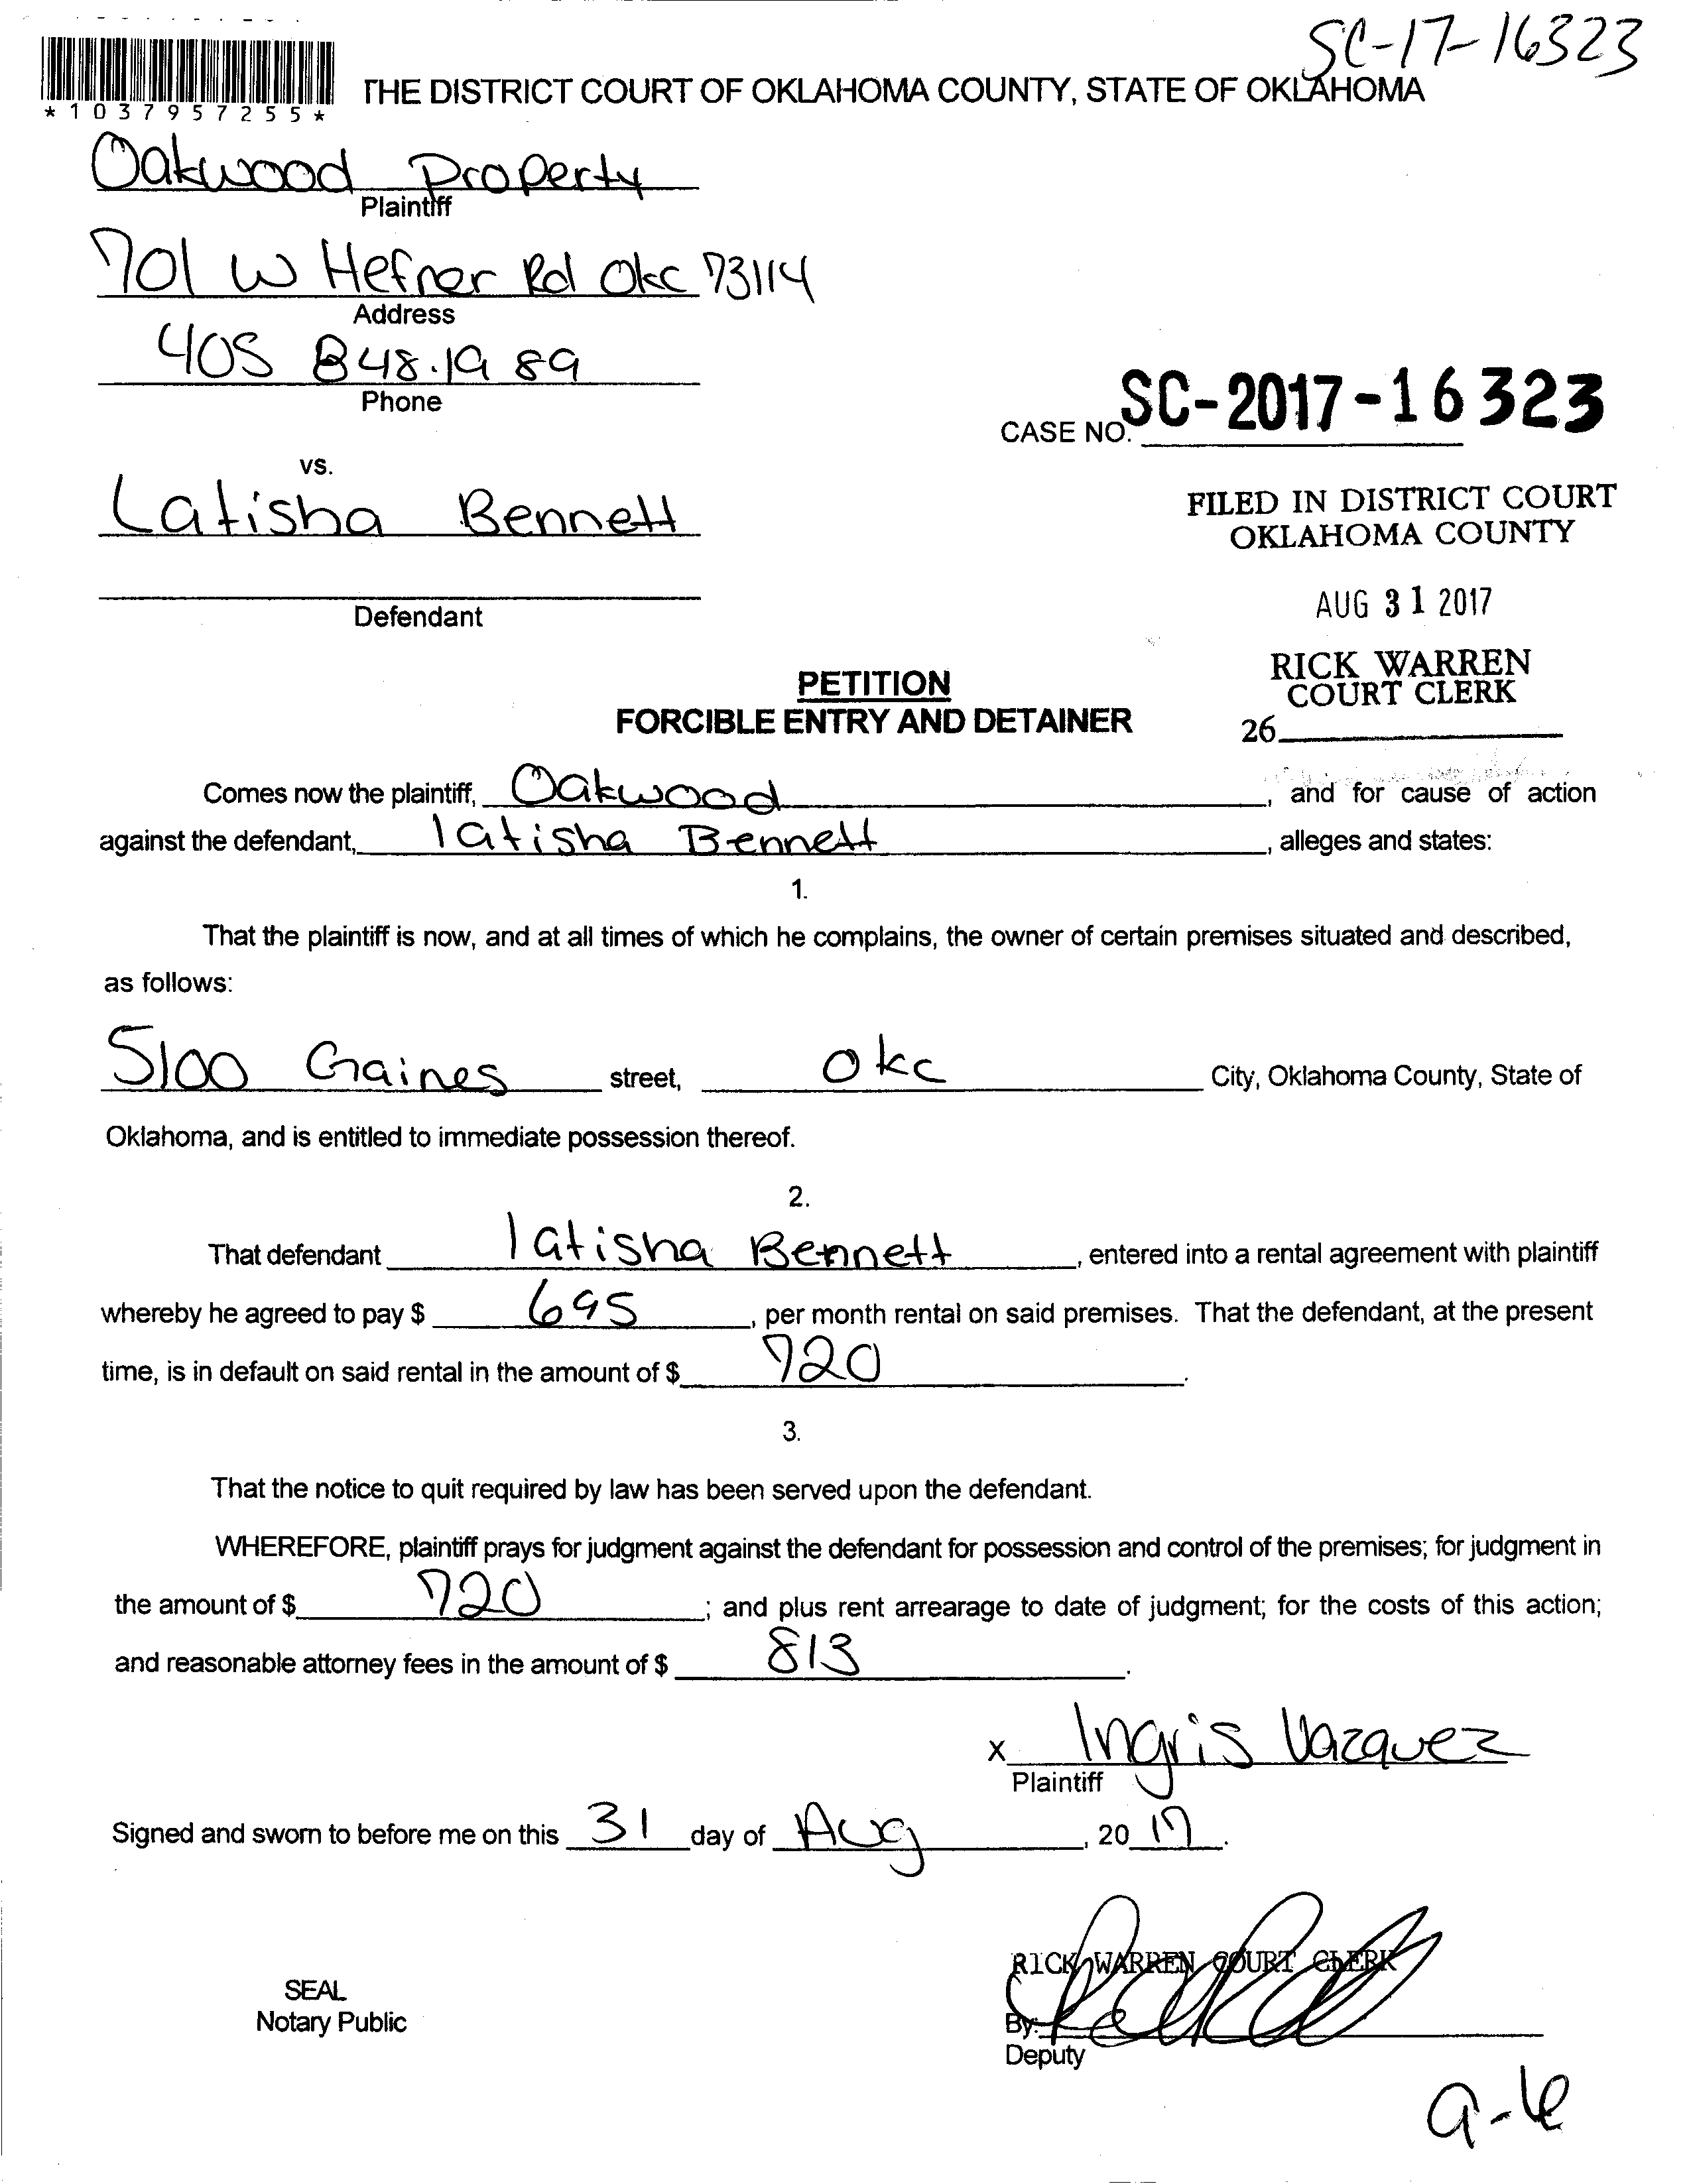 SC-17-16323
*1037957255*
THE DISTRICT COURT OF OKLAHOMA COUNTY, STATE OF OKLAHOMA
Oakwood Property
Plaintiff
701 W Hefner Rd Okc 73114
Address
405 848.1989
Phone
CASE NO. SC-2017-16323
vs.
Latisha Bennett
FILED IN DISTRICT COURT
OKLAHOMA COUNTY
Defendant
AUG 31 2017
RICK WARREN
COURT CLERK
26
PETITION
FORCIBLE ENTRY AND DETAINER
Comes now the plaintiff, Oakwood, and for cause of action
against the defendant, latisha Bennett, alleges and states:
1.
That the plaintiff is now, and at all times of which he complains, the owner of certain premises situated and described,
as follows:
5100 Gaines street, Okc City, Oklahoma County, State of
Oklahoma, and is entitled to immediate possession thereof.
2.
That defendant latisha Bennett, entered into a rental agreement with plaintiff
whereby he agreed to pay $ 695, per month rental on said premises. That the defendant, at the present
time, is in default on said rental in the amount of $ 720.
3.
That the notice to quit required by law has been served upon the defendant.
WHEREFORE, plaintiff prays for judgment against the defendant for possession and control of the premises; for judgment in
the amount of $ 720; and plus rent arrearage to date of judgment; for the costs of this action;
and reasonable attorney fees in the amount of $ 813.
x Ingris Vazquez
Plaintiff
Signed and sworn to before me on this 31 day of Aug, 2017.
RICK WARREN COURT CLERK
SEAL
Notary Public
By:
Deputy
9-6